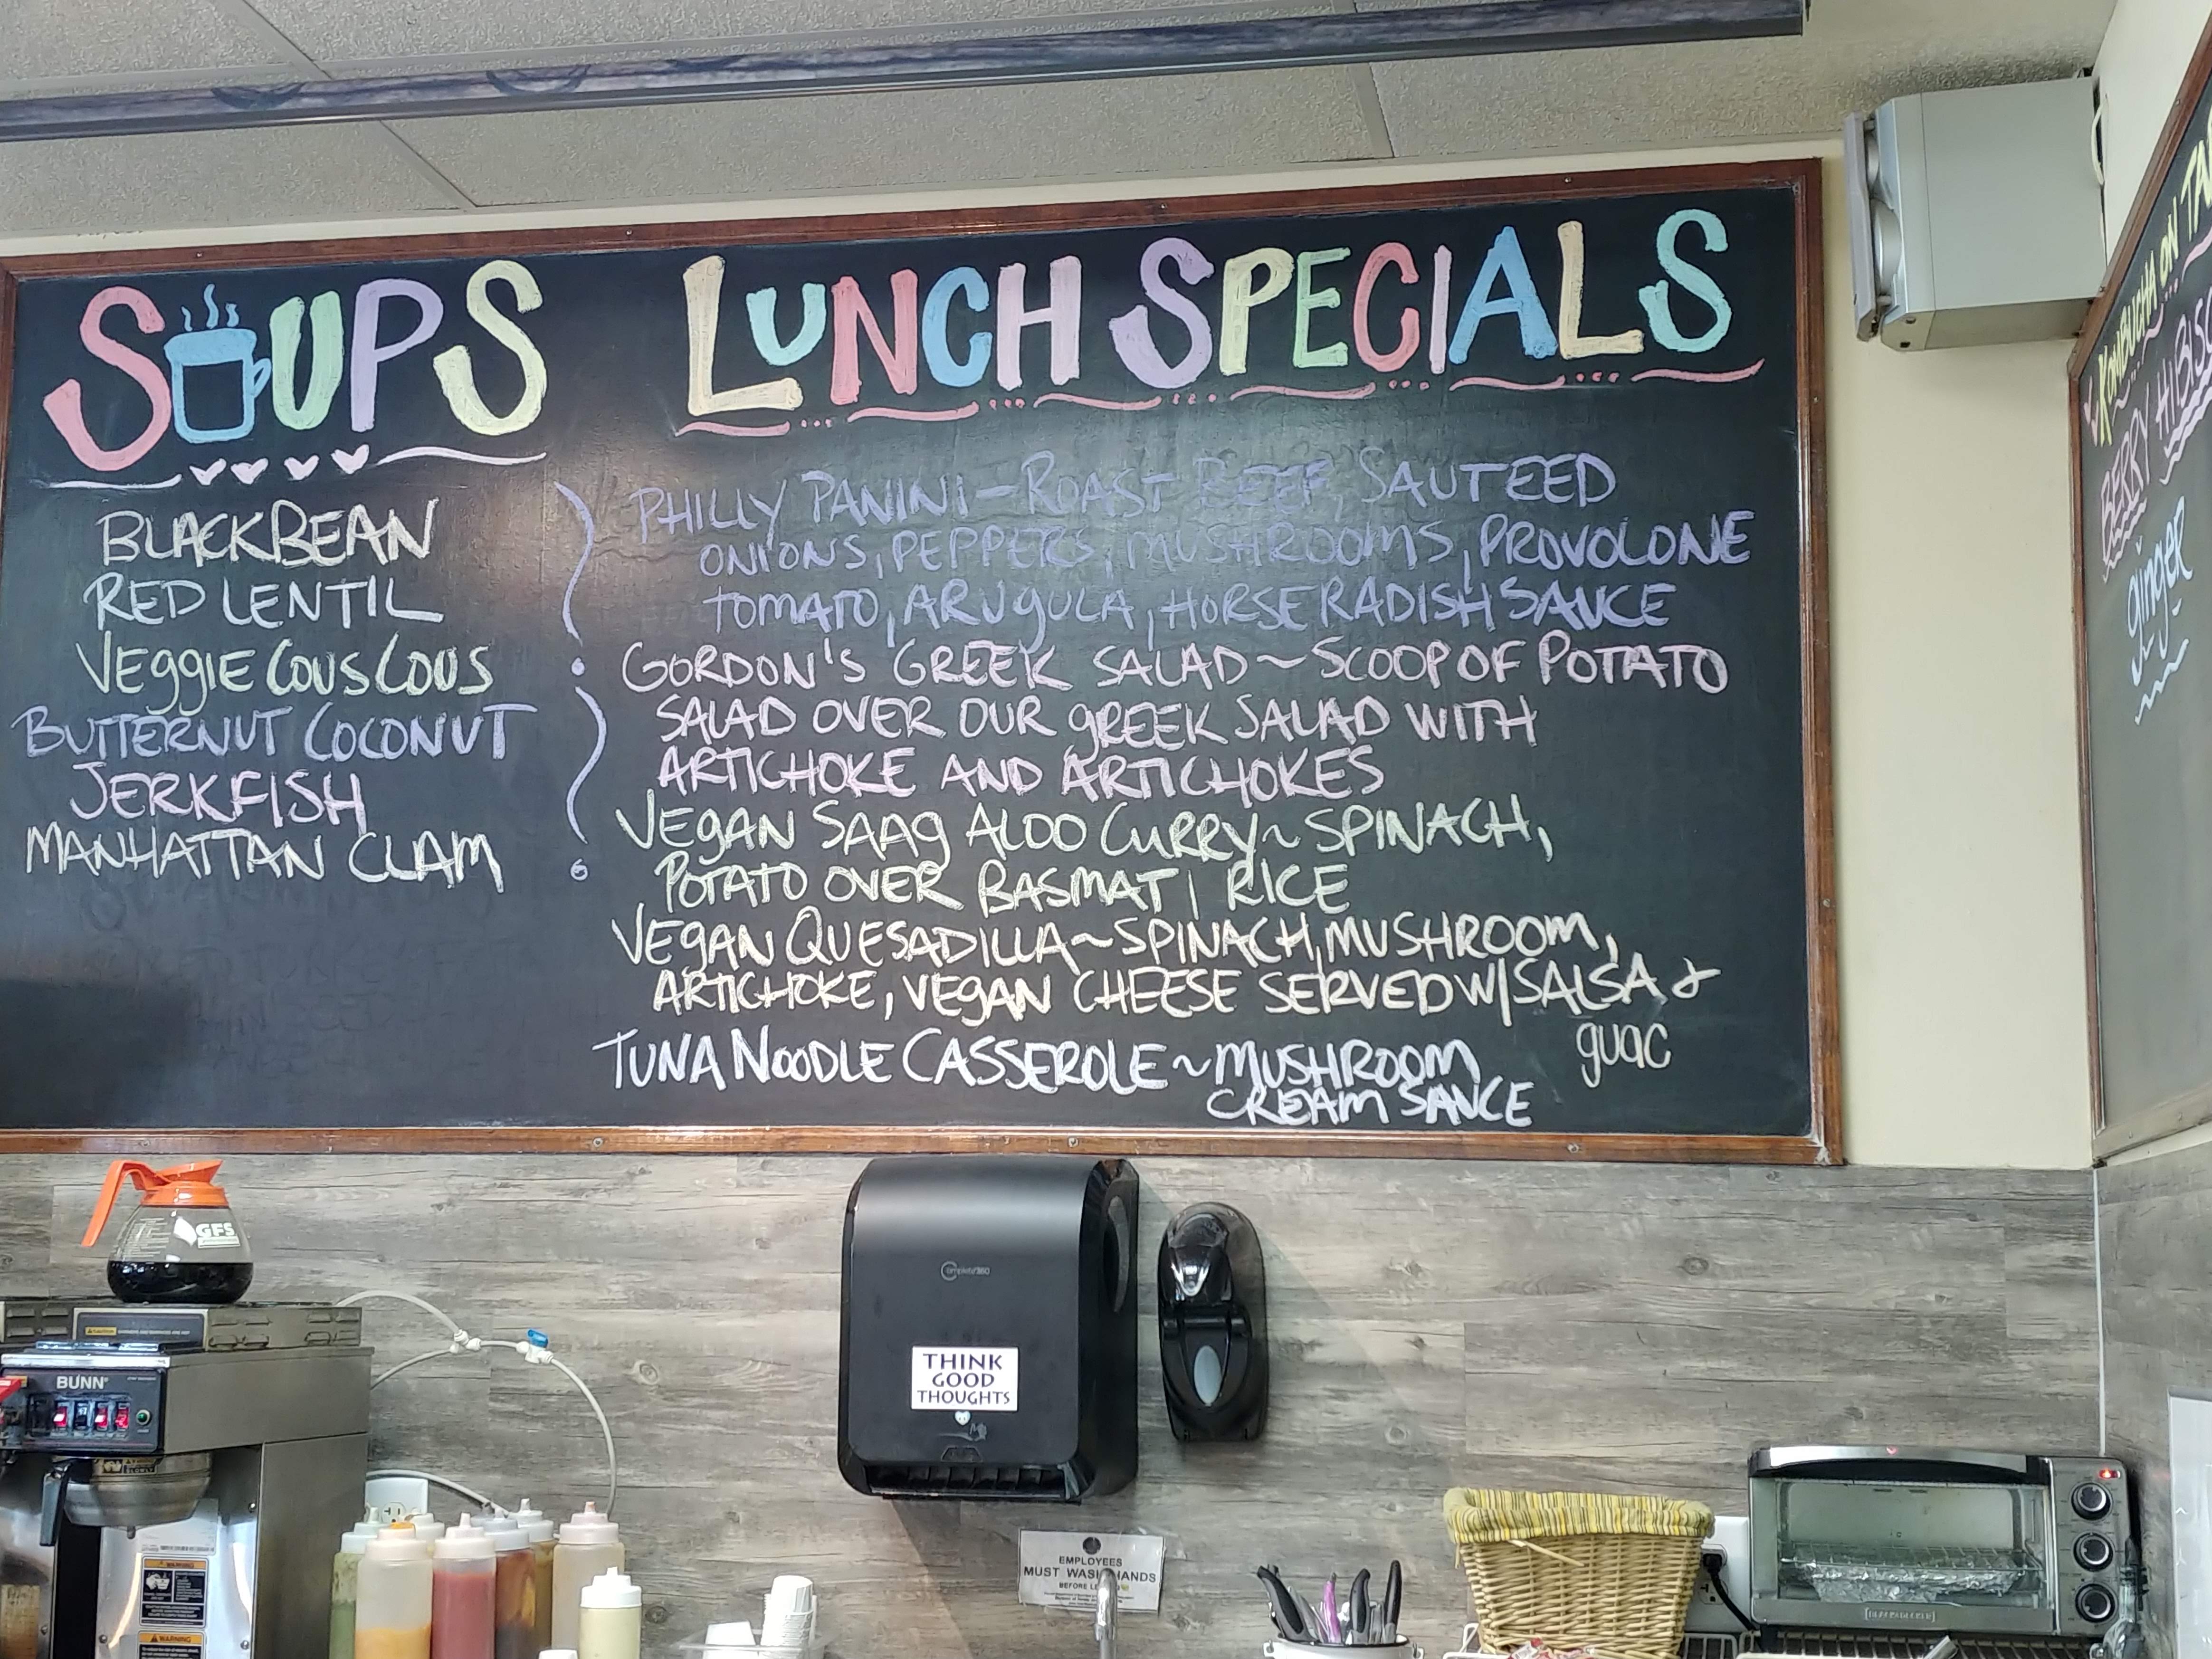 SOUPS
BLACK BEAN
RED LENTIL
VEGGIE COUS COUS
BUTTERNUT COCONUT
JERKFISH
MANHATTAN CLAM
LUNCH SPECIALS
PHILLY PANINI - ROAST BEEF, SAUTEED
ONIONS, PEPPERS, MUSHROOMS, PROVOLONE
TOMATO, ARUGULA, HORSERADISH SAUCE
GORDON'S GREEK SALAD ~ SCOOP OF POTATO
SALAD OVER OUR GREEK SALAD WITH
ARTICHOKE AND ARTICHOKES
VEGAN SAAG ALOO CURRY ~ SPINACH,
POTATO OVER BASMATI RICE
VEGAN QUESADILLA ~ SPINACH, MUSHROOM,
ARTICHOKE, VEGAN CHEESE SERVED W/ SALSA &
guac
TUNA NOODLE CASSEROLE ~ MUSHROOM
CREAM SAUCE
KOMBUCHA ON
BERRY
ginger
GFS
BUNN
WARNING
WARNING
THINK
GOOD
THOUGHTS
EMPLOYEES
MUST WASH HANDS
BEFORE
BLACK+DECKER